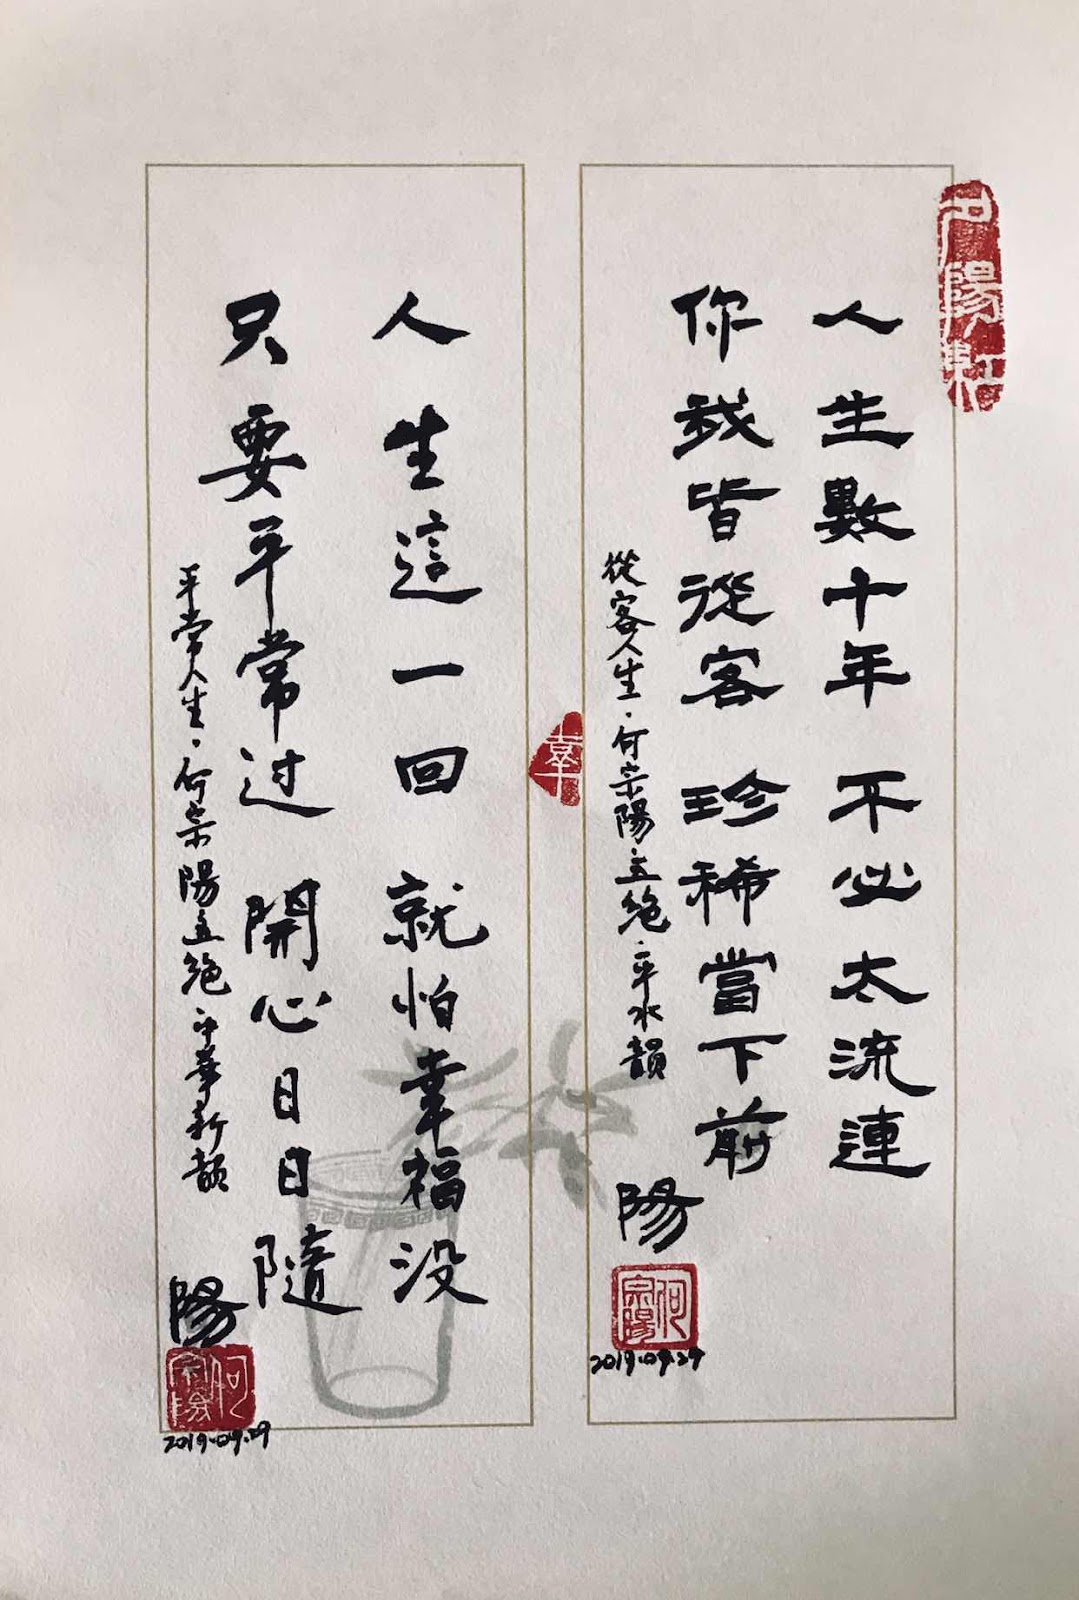 人生數十年 不必太流連
你我皆從客 珍稀當下前
從客人生·何宗陽五絕·平水韻
陽
何宗陽
2019.09.29
人生這一回 就怕幸福没
只要平常过 開心日日隨
平常人生·何宗陽五絕·中華新韻
陽
何宗陽
2019.09.29